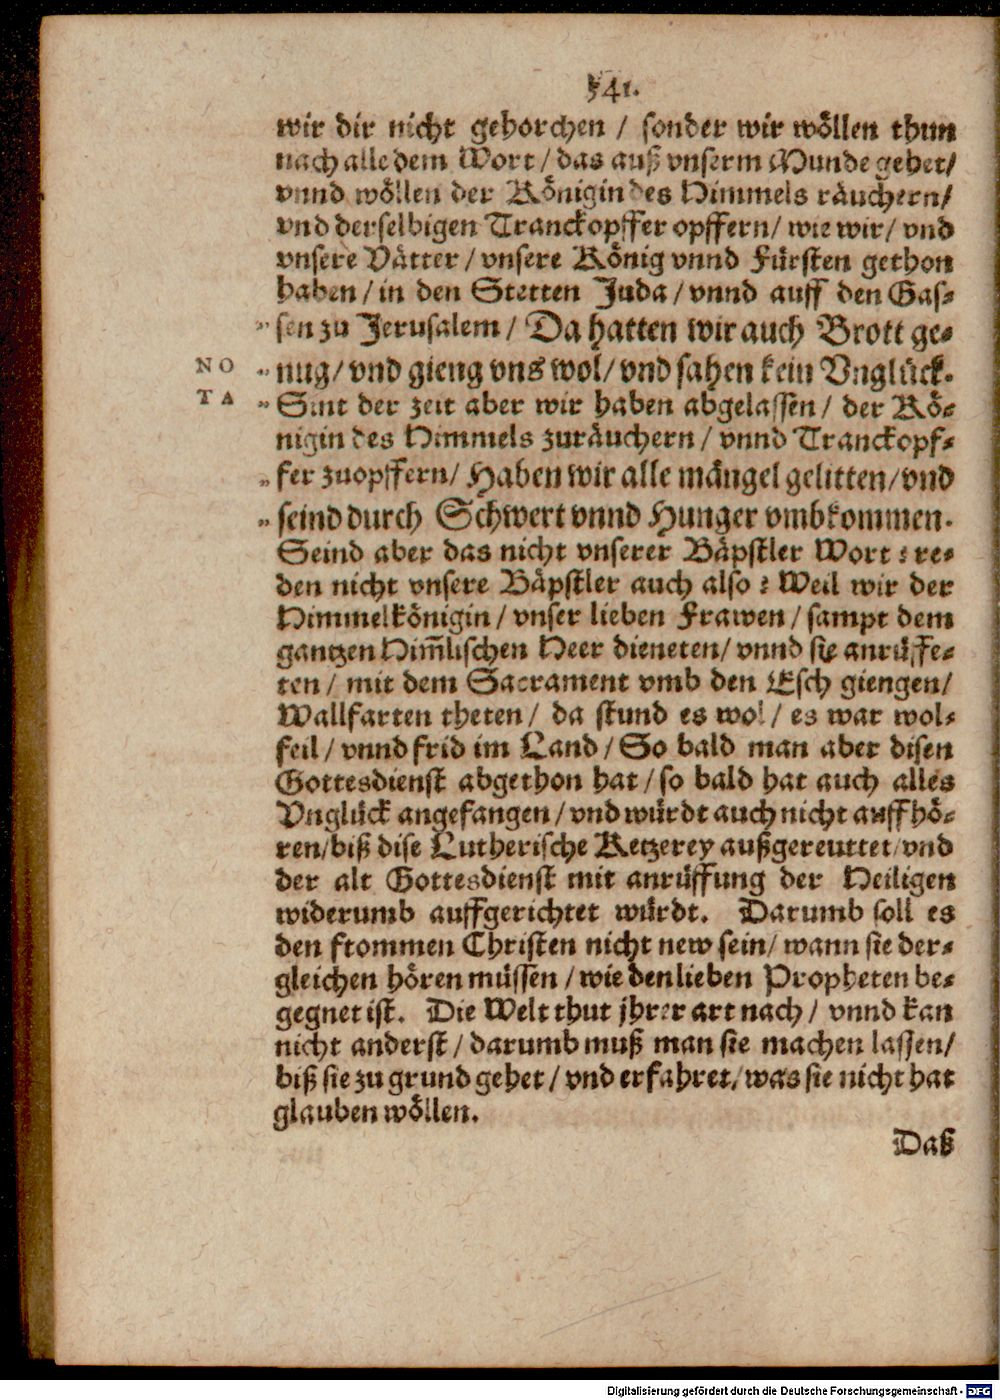 541.
wir dir nicht gehorchen / sonder wir wöllen thun
nach alle dem Wort / das auß vnserm Munde gehet /
vnnd wöllen der Königin des Himmels räuchern /
vnd derselbigen Tranckopffer opffern / wie wir / vnd
vnsere Vätter / vnsere König vnnd Fürsten gethon
haben / in den Stetten Juda / vnnd auff den Gas⸗
„ sen zu Jerusalem / Da hatten wir auch Brott ge⸗
NO „ nug / vnd gieng vns wol / vnd sahen kein Vnglück.
TA „ Sint der zeit aber wir haben abgelassen / der Kö⸗
nigin des Himmels zuräuchern / vnnd Tranckopf⸗
„ fer zuopffern / Haben wir alle mängel gelitten / vnd
„ seind durch Schwert vnnd Hunger vmbkommen.
Seind aber das nicht vnserer Bäpstler Wort ? re⸗
den nicht vnsere Bäpstler auch also ? Weil wir der
Himmelkönigin / vnser lieben Frawen / sampt dem
gantzen Him̃lischen Heer dieneten / vnnd sie anrüffe⸗
ten / mit dem Sacrament vmb den Esch giengen /
Wallfarten theten / da stund es wol / es war wol⸗
feil / vnnd frid im Land / So bald man aber disen
Gottesdienst abgethon hat / so bald hat auch alles
Vnglück angefangen / vnd würdt auch nicht auffhö⸗
ren / biß dise Lutherische Ketzerey außgereuttet / vnd
der alt Gottesdienst mit anrüffung der Heiligen
widerumb auffgerichtet würdt. Darumb soll es
den frommen Christen nicht new sein / wann sie der⸗
gleichen hören müssen / wie den lieben Propheten be⸗
gegnet ist. Die Welt thut jhrer art nach / vnnd kan
nicht anderst / darumb muß man sie machen lassen /
biß sie zu grund gehet / vnd erfahret / was sie nicht hat
glauben wöllen.
Daß
Digitalisierung gefördert durch die Deutsche Forschungsgemeinschaft - DFG